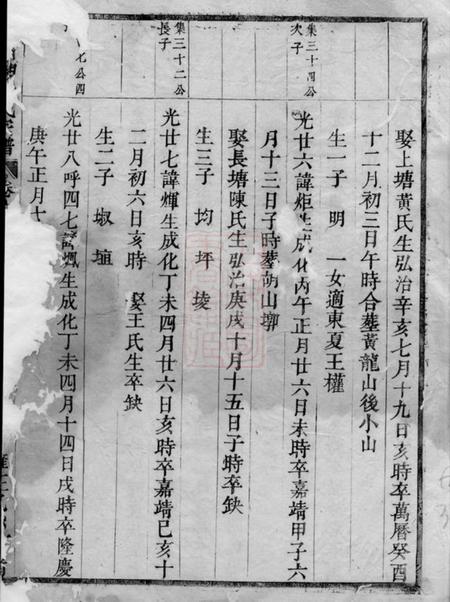 娶上塘黃氏生弘治辛亥七月十九日亥時卒萬曆癸酉
十二月初三日午時合塟黃龍山後小山
生一子 明 一女適東夏王權
集三十四公
次子
光廿六諱炬生成化丙午正月廿六日未時卒嘉靖甲子六
月十三日子時塟胡山墎
娶長塘陳氏生弘治庚戌十月十五日子時卒缺
生三子 均 坪 堎
集三十二公
長子
光廿七諱煇生成化丁未四月廿六日亥時卒嘉靖己亥十
二月初六日亥時 娶王氏生卒缺
生二子 埱 垣
公四
光廿八呼四七諱 生成化丁未四月十四日戌時卒隆慶
庚午正月十
譜